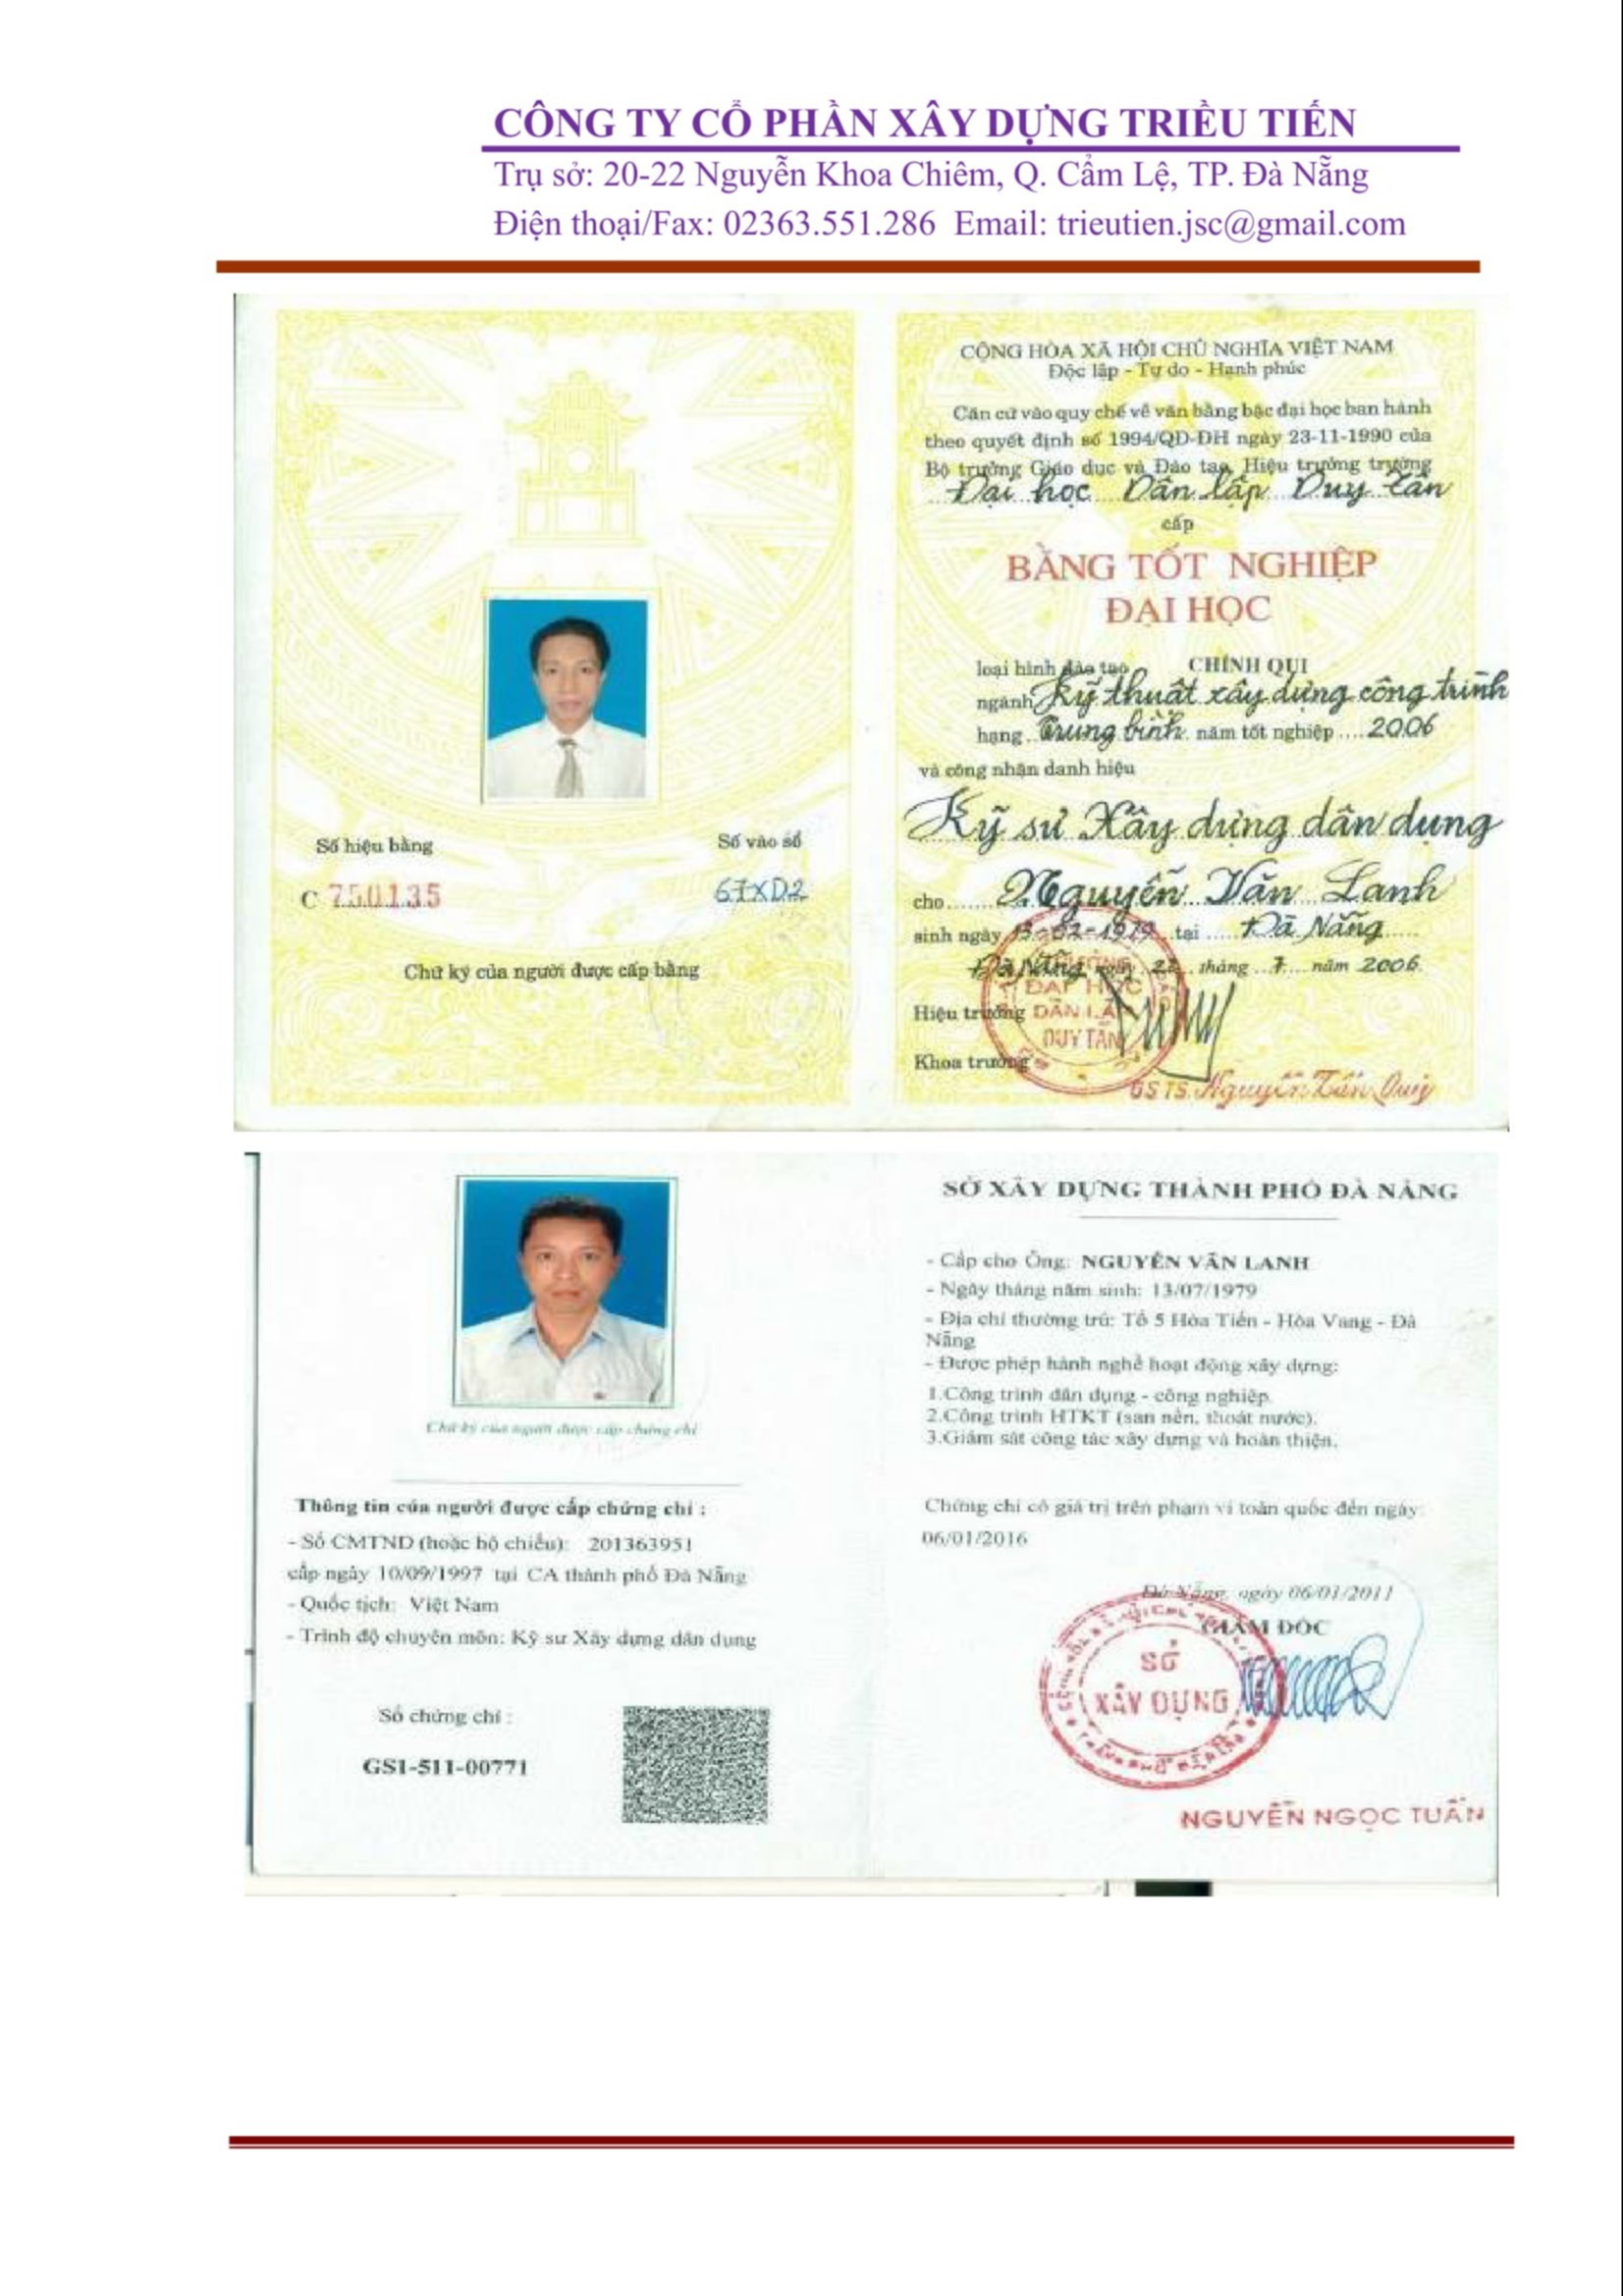 CÔNG TY CỔ PHẦN XÂY DỰNG TRIỀU TIẾN
Trụ sở: 20-22 Nguyễn Khoa Chiêm, Q. Cẩm Lệ, TP. Đà Nẵng
Điện thoại/Fax: 02363.551.286 Email: trieutien.jsc@gmail.com
CỘNG HÒA XÃ HỘI CHỦ NGHĨA VIỆT NAM
Độc lập - Tự do - Hạnh phúc
Căn cứ vào quy chế về văn bằng bậc đại học ban hành
theo quyết định số 1994/QD-ĐH ngày 23-11-1990 của
Bộ trưởng Giáo dục và Đào tạo, Hiệu trưởng trường
Đại học Dân lập Duy Tân
cấp
BẰNG TỐT NGHIỆP
ĐẠI HỌC
loại hình đào tạo CHÍNH QUI
ngành Kỹ thuật xây dựng công trình
hạng Trung bình năm tốt nghiệp 2006
và công nhận danh hiệu
Kỹ sư Xây dựng dân dụng
cho Nguyễn Văn Lanh
sinh ngày tại Đà Nẵng
Đà Nẵng ngày 22 tháng 7 năm 2006
Hiệu trưởng
Khoa trưởng
TRƯỜNG
ĐẠI HỌC
DÂN LẬP
DUY TÂN
GSTS. Nguyễn Tấn Quý
Số hiệu bằng
Số vào sổ
C 750135
67XD2
Chữ ký của người được cấp bằng
Chữ ký của người được cấp chứng chỉ
Thông tin của người được cấp chứng chỉ :
- Số CMTND (hoặc hộ chiếu): 201363951
cấp ngày 10/09/1997 tại CA thành phố Đà Nẵng
- Quốc tịch: Việt Nam
- Trình độ chuyên môn: Kỹ sư Xây dựng dân dụng
Số chứng chỉ :
GS1-511-00771
SỞ XÂY DỰNG THÀNH PHỐ ĐÀ NẴNG
- Cấp cho Ông: NGUYỄN VĂN LANH
- Ngày tháng năm sinh: 13/07/1979
- Địa chỉ thường trú: Tổ 5 Hòa Tiến - Hòa Vang - Đà
Nẵng
- Được phép hành nghề hoạt động xây dựng:
1.Công trình dân dụng - công nghiệp.
2.Công trình HTKT (san nền, thoát nước).
3.Giám sát công tác xây dựng và hoàn thiện.
Chứng chỉ có giá trị trên phạm vi toàn quốc đến ngày:
06/01/2016
Đà Nẵng, ngày 06/01/2011
GIÁM ĐỐC
SỞ
XÂY DỰNG
NGUYỄN NGỌC TUẤN